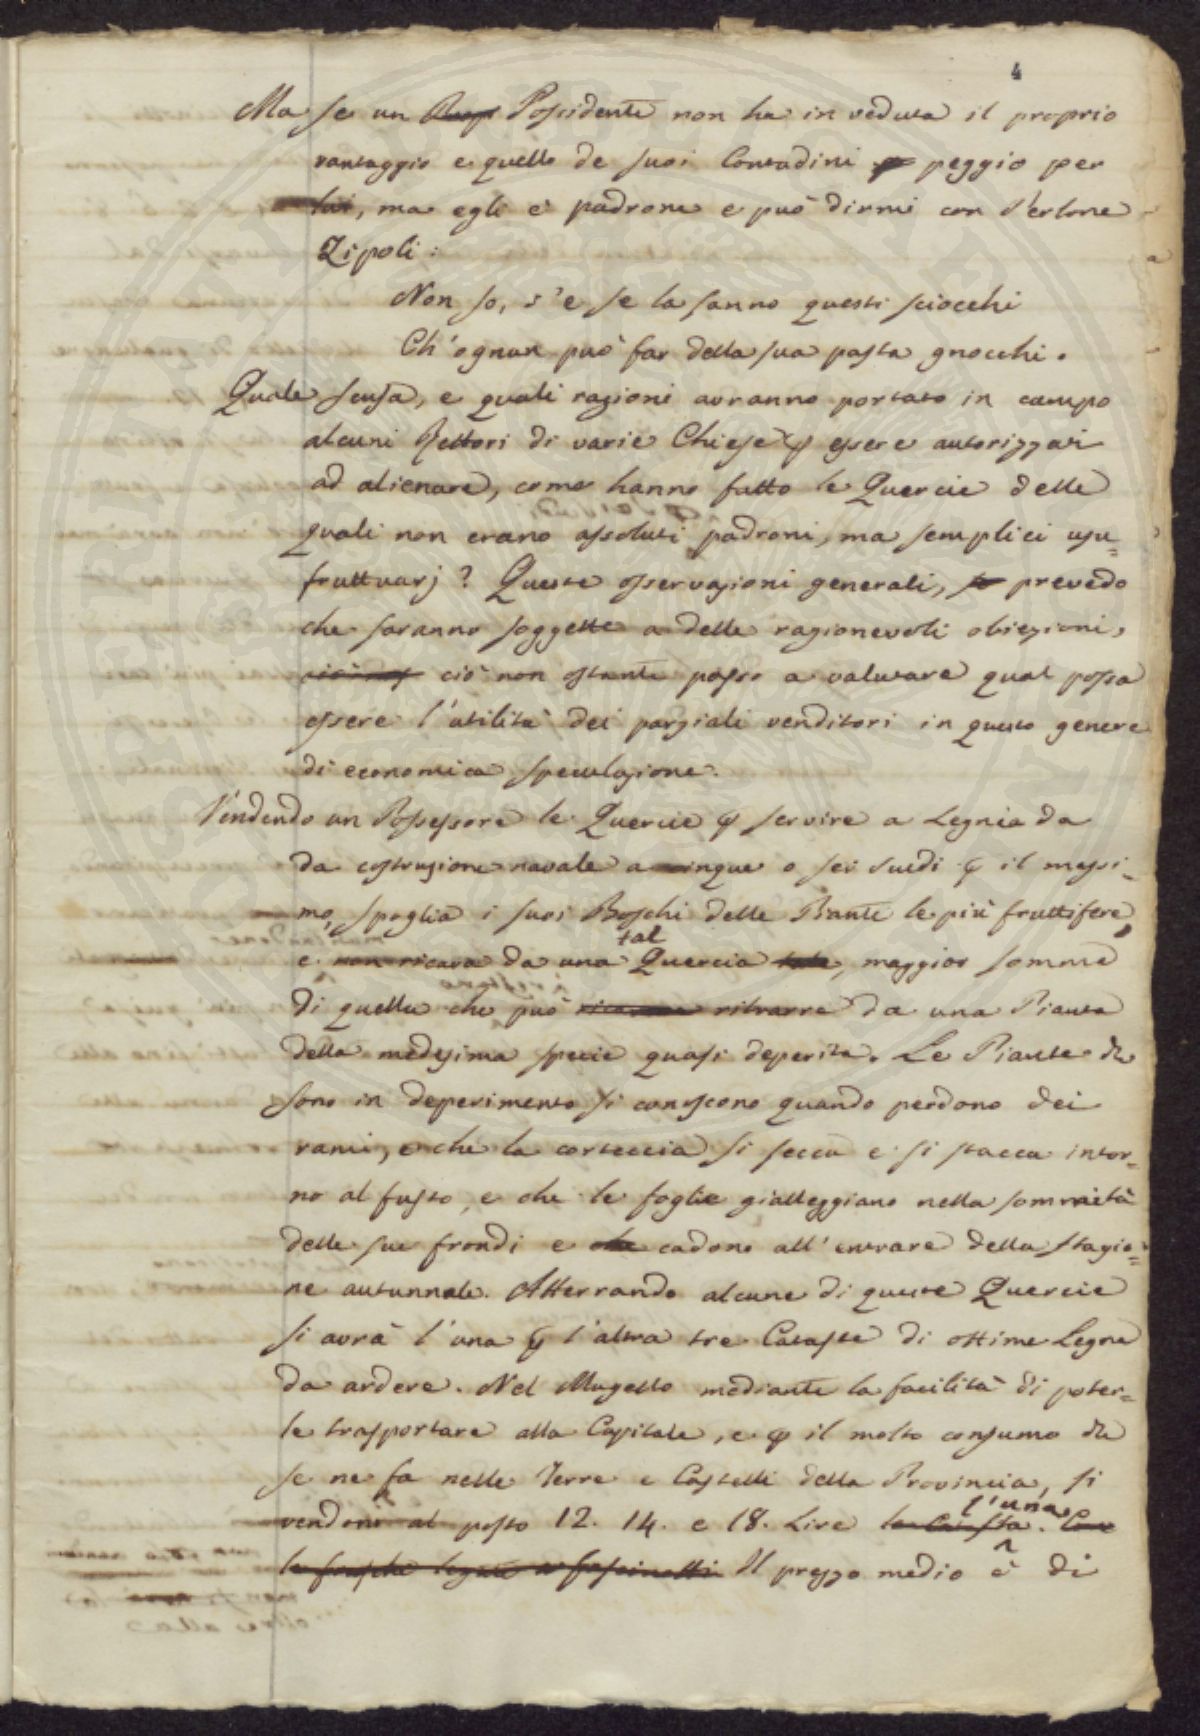 4
Ma se un Possidente non ha in veduta il proprio
vantaggio e quello de suoi Contadini peggio per
lui, ma egli è padrone e può dirmi con Perlone
Zipoli:
Non so, s'e se la sanno questi sciocchi
Ch'ognun può far della sua pasta gnocchi.
Quale scusa, e quali ragioni avranno portato in campo
alcuni Rettori di varie Chiese p essere autorizzati
ad alienare, come hanno fatto le Quercie delle
quali non erano assoluti padroni, ma semplici usu=
fruttuarj? Queste osservazioni generali, prevedo
che saranno soggette a delle ragionevoli obiezioni,
ciò non ostante passo a valutare qual possa
essere l'utilità dei parziali venditori in questo genere
di economica speculazione.
Vendendo un Possessore le Quercie p servire a Legnia da
da costruzione navale a cinque o sei scudi p il massi=
mo, spoglia i suoi Boschi delle Piante le più fruttifere,
e non ricava da una tal Quercia tale, maggior somma
di quella che può ricavare ritrarre da una Pianta
della medesima specie quasi deperita. Le Piante che
sono in deperimento si conoscono quando perdono dei
rami, e che la corteccia si secca e si stacca intor=
no al fusto, e che le foglie gialleggiano nella sommità
delle sue frondi e che cadono all'entrare della stagio=
ne autunnale. Atterrando alcune di queste Quercie
si avrà l'una p l'altra tre Cataste di ottime Legne
da ardere. Nel Mugello mediante la facilità di poter=
le trasportare alla Capitale, e p il molto consumo che
se ne fa nelle Terre e Castelli della Provincia, si
vendono al posto 12. 14. e 18. Lire la Catasta l'una. Con
le frasche legate a fascinotti Il prezzo medio è di